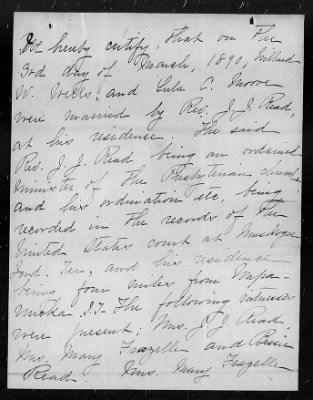 We hereby certify, that on the
3rd day of March, 1890, Millard
W. Wells, and Lula C. Moore
were married by Rev. J. J. Read,
at his residence. The said
Rev. J. J. Read being an ordained
minister of the Presbyterian church
and his ordination etc. being
recorded in the records of the
United States court at Muskogee
Ind. Ter., and his residence
being four miles from Wapa-
nucka I.T. The following witnesses
were present; Mrs. J. J. Read,
Mrs. Mary Frazelle and Bessie
Read Mrs. Mary Frazelle